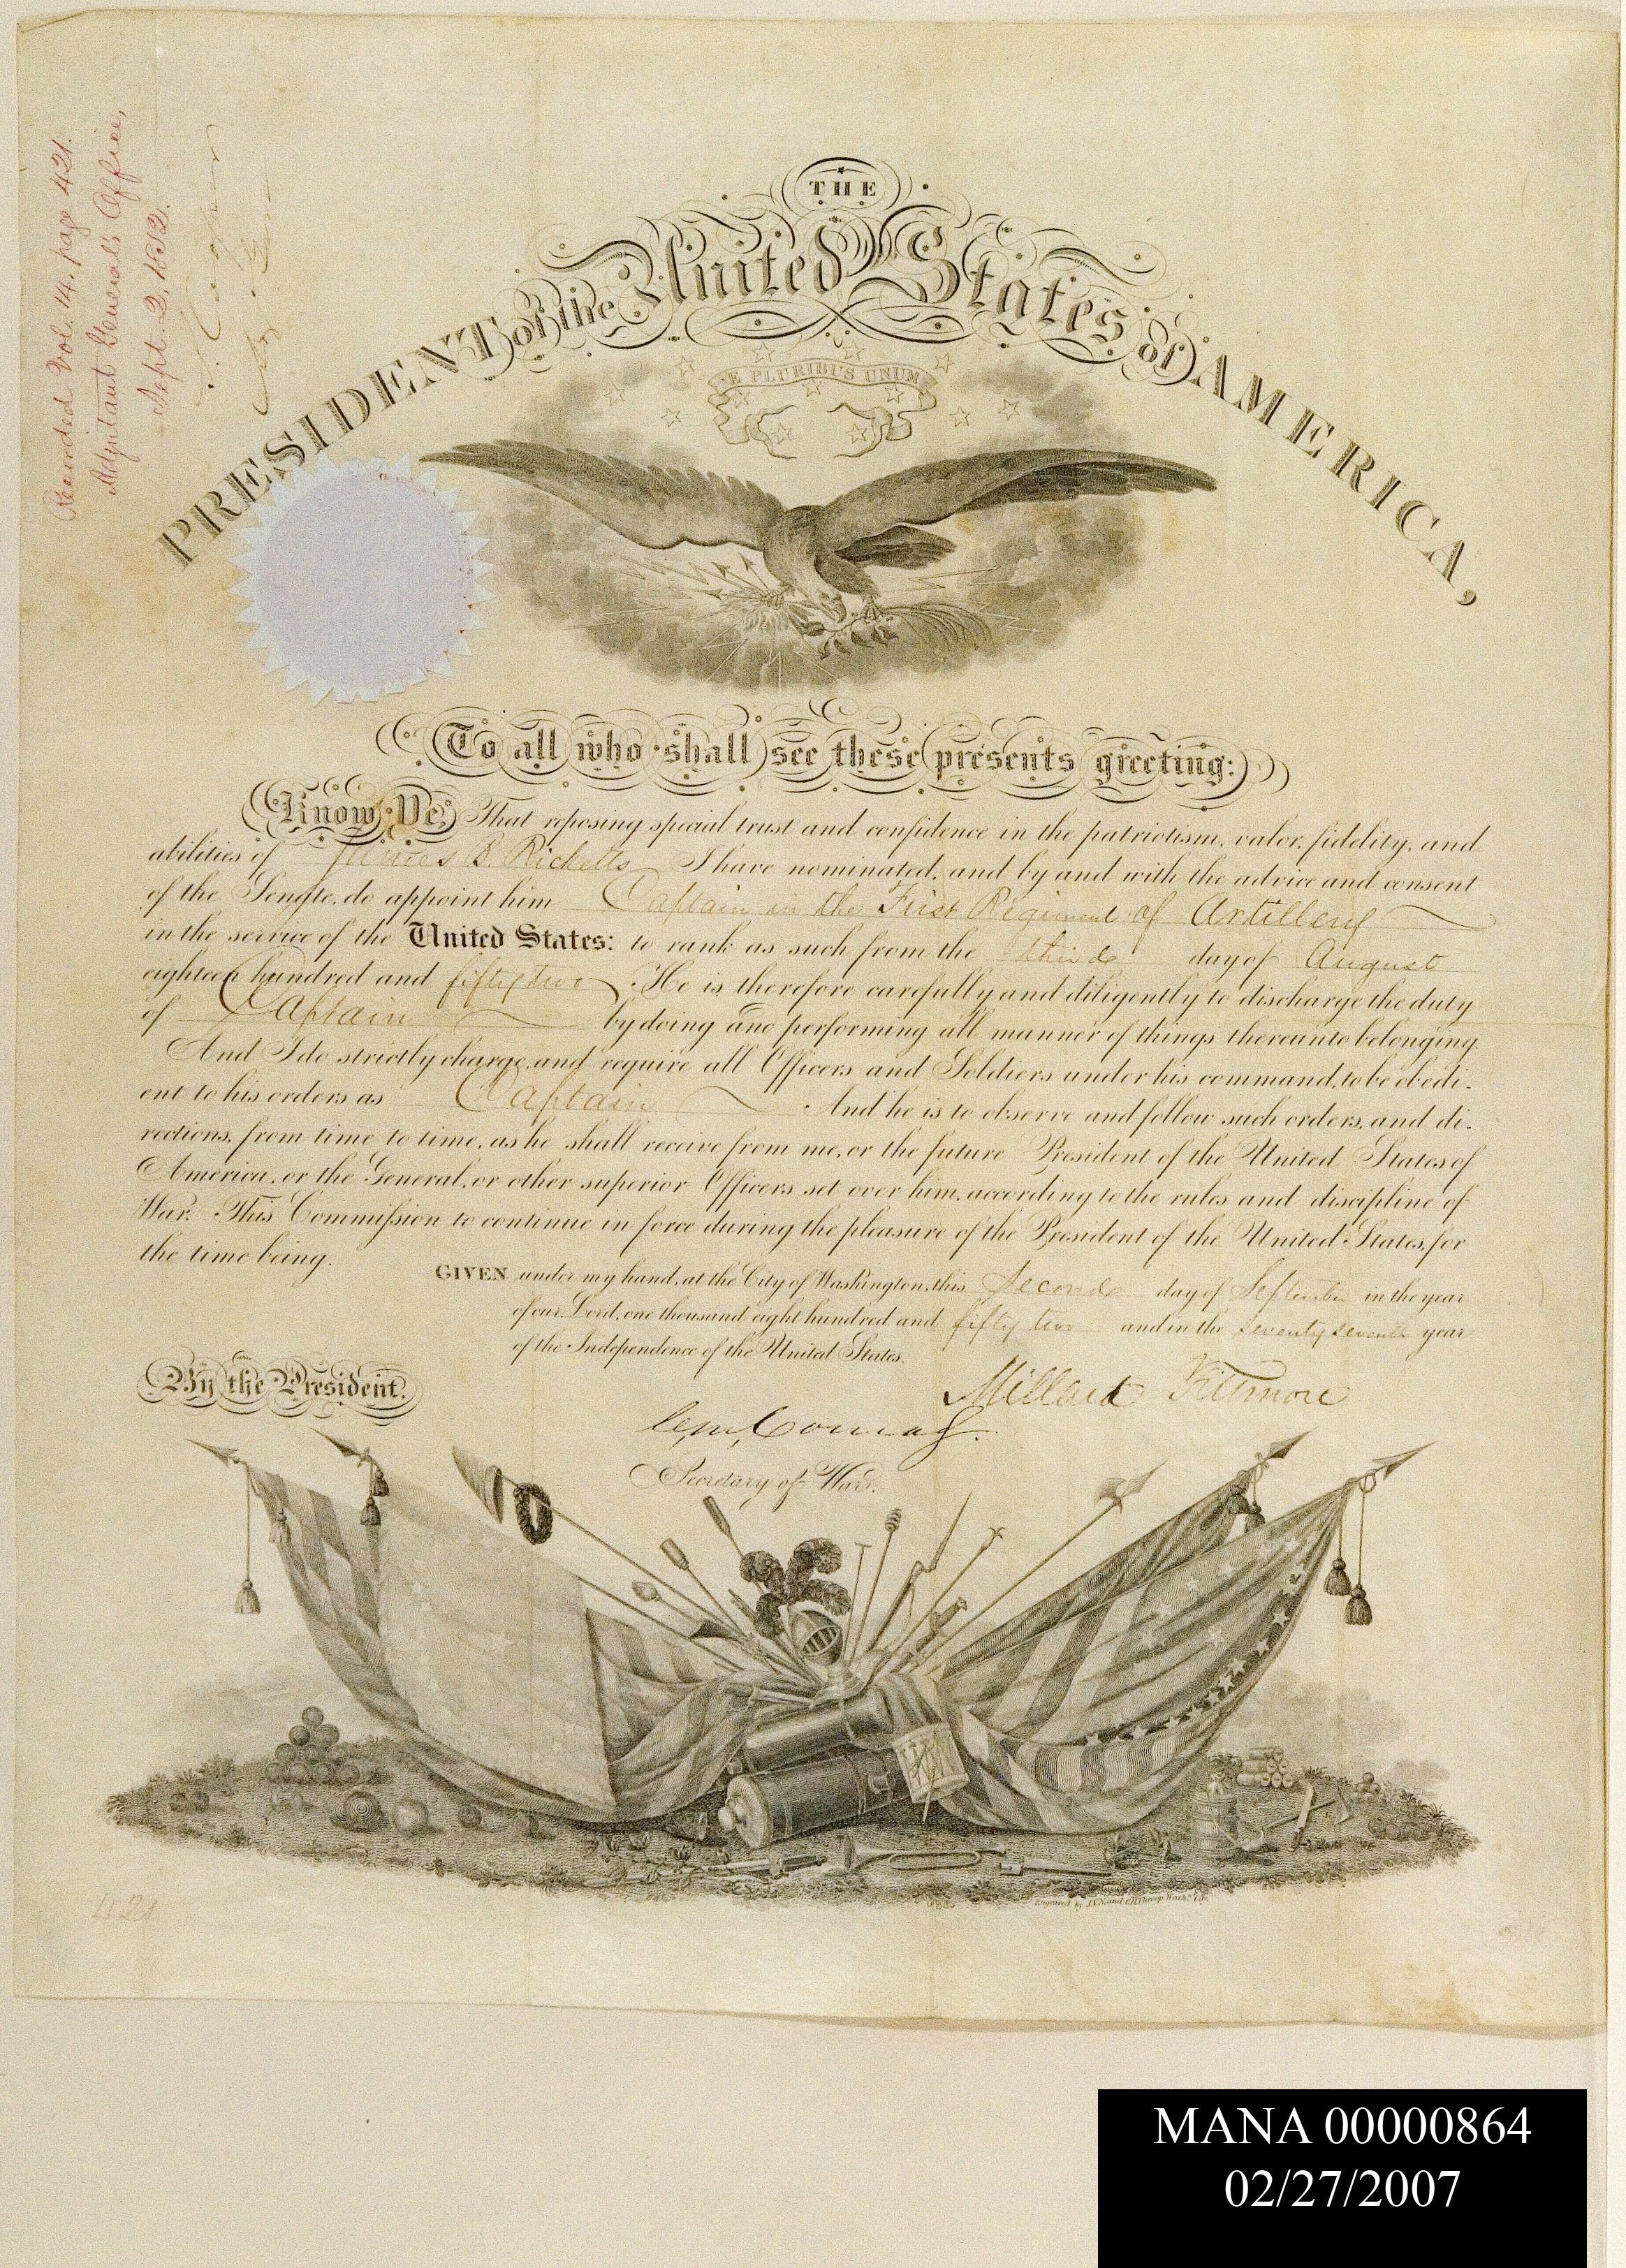 Recorded Vol. 14, page 421.
Adjutant General's Office,
Sept. 2, 1852.
THE
PRESIDENT of the United States of AMERICA,
E PLURIBUS UNUM
To all who shall see these presents greeting:
Know Ye, That reposing special trust and confidence in the patriotism, valor, fidelity, and
abilities of James B. Ricketts I have nominated, and by and with the advice and consent
of the Senate, do appoint him Captain in the First Regiment of Artillery
in the service of the United States: to rank as such from the third day of August
eighteen hundred and fifty two. He is therefore carefully and diligently to discharge the duty
of Captain by doing and performing all manner of things thereunto belonging.
And I do strictly charge and require all Officers and Soldiers under his command, to be obedi-
ent to his orders as Captain And he is to observe and follow such orders, and di-
rections, from time to time, as he shall receive from me, or the future President of the United States of
America, or the General, or other superior Officers set over him, according to the rules and discipline of
War. This Commission to continue in force during the pleasure of the President of the United States, for
the time being.
GIVEN under my hand, at the City of Washington, this Second day of September in the year
of our Lord, one thousand eight hundred and fifty two and in the seventy seventh year
of the Independence of the United States.
By the President.
Millard Fillmore
C. M. Conrad.
Secretary of War.
421
MANA 00000864
02/27/2007